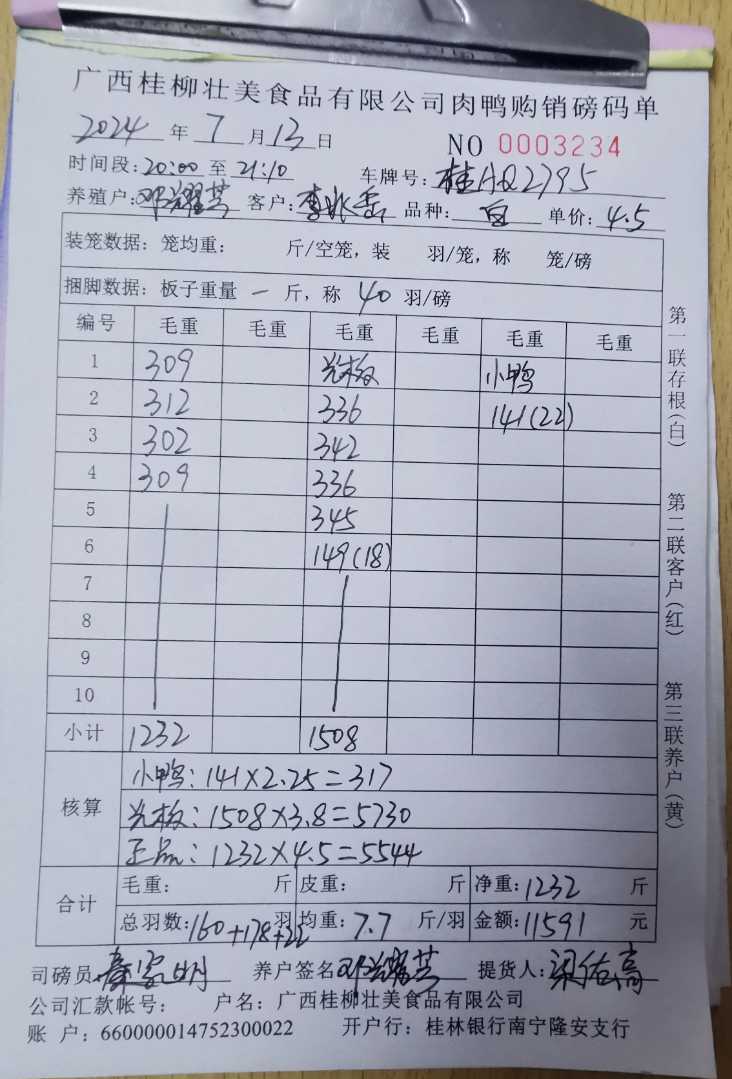 广西桂柳壮美食品有限公司肉鸭购销磅码单
2024 年 7 月 13 日 NO 0003234
时间段: 20:00 至 21:10 车牌号: 桂AQ2795
养殖户: 邓耀芸 客户: 李兆 品种: 白 单价: 4.5
装笼数据: 笼均重: 斤/空笼, 装 羽/笼, 称 笼/磅
捆脚数据: 板子重量 一 斤, 称 40 羽/磅
编号 毛重 毛重 毛重 毛重 毛重 毛重
1 309 光板 小鸭
2 312 336 141(22)
3 302 342
4 309 336
5 345
6 149(18)
7
8
9
10
小计 1232 1508
核算
小鸭: 141×2.25=317
光板: 1508×3.8=5730
正品: 1232×4.5=5544
合计
毛重: 斤 皮重: 斤 净重: 1232 斤
总羽数: 160+178+22 羽 均重: 7.7 斤/羽 金额: 11591 元
司磅员 明 养户签名 邓耀芸 提货人: 梁佑高
公司汇款帐号: 户名: 广西桂柳壮美食品有限公司
账 户: 660000014752300022 开户行: 桂林银行南宁隆安支行
第一联存根(白)
第二联客户(红)
第三联养户(黄)